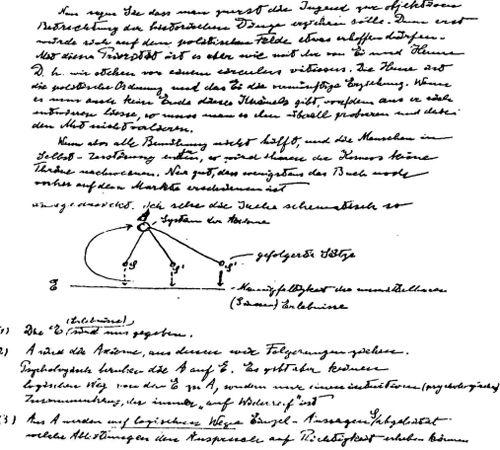 Nun sagen Sie dass man zuerst die Jugend zur objektiven
Betrachtung der historischen Dinge erziehen solle. Dann erst
würde sich auf dem politischen Felde etwas erhoffen dürfen.
Mit dieser Priorität ist es aber wie mit der von Ei und Henne
D. h. wir stehen vor einem circulus vitiosus. Die Henne ist
die politische Ordnung und das Ei die vernünftige Erziehung. Wenn
es nun auch kein Ende dieses Knäuels gibt, von dem aus er sich
entwirren liesse, so muss man es eben überall probieren und dabei
den Mut nicht verlieren.
Wenn aber alle Bemühung nichts hilft, und die Menschen in
Selbst-Zerstörung enden, so wird ihnen der Kosmos keine
Thräne nachweinen. Nur gut, dass wenigstens das Buch noch
vorher auf dem Markte erschienen ist
ausgedrückt. Ich sehe die Sache schematisch so
A
System der Axiome
S S' S''
gefolgerte Sätze
E
Mannigfaltigkeit der unmittelbaren
(Sinnes) Erlebnisse
(1) Die E (Erlebnisse) sind uns gegeben.
2) A sind die Axiome, aus denen wir Folgerungen ziehen.
Psychologisch beruhen die A auf E. Es gibt aber keinen
logischen Weg von den E zu A, sondern nur einen intuitiven (psychologischen)
Zusammenhang, der immer „auf Widerruf" ist
(3) Aus A werden auf logischem Wege Einzel-Aussagen S abgeleitet
welche Ableitungen den Anspruch auf Richtigkeit erheben können